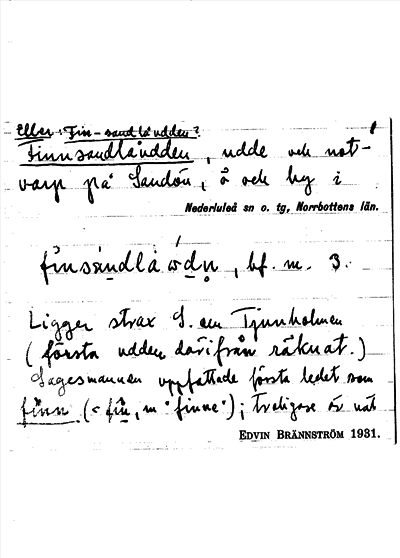 Eller: Fin-sandlåudden?
Finnsandlåudden, udde och not-
varp på Sandön, ö och by i
Nederluleå sn o. tg, Norrbottens län.
finsandlåwdn, bf. m. 3.
Ligger strax S. om Tjuvholmen
(första udden därifrån räknat.)
Sagesmannen uppfattade första ledet som
finn (= fin, m "finne"); troligare är väl
EDVIN BRÄNNSTRÖM 1931.